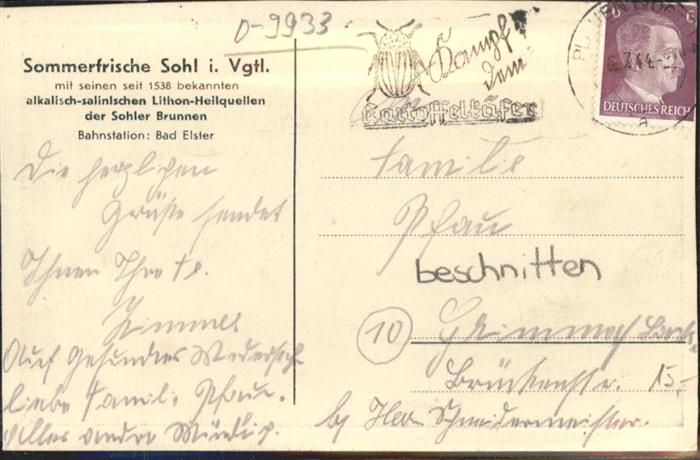 D-9933
Sommerfrische Sohl i. Vgtl.
mit seinen seit 1538 bekannten
alkalisch-salinischen Lithon-Heilquellen
der Sohler Brunnen
Bahnstation: Bad Elster
Kampf
dem
Kartoffelkäfer
44
DEUTSCHES REICH
A
Die herzlichen
Grüße sendet
Ihnen Ihre
Auf Gesundes Wiedersehn
liebe Familie Pfau.
Alles andre Mündlich.
Familie
Pfau
beschnitten
10
Brückenstr.
15,-
bj Herr Schneidermeister.